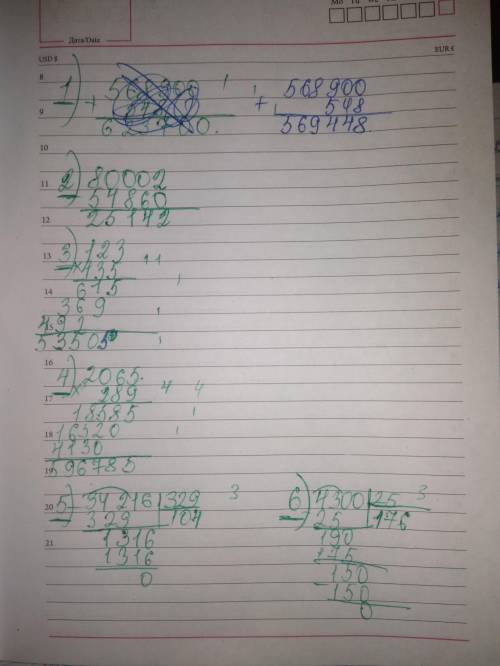 Mo Tu We
Дата/Date
USD $ EUR €
8
1) 568900
+ 548
9
569448.
10
11
2) 80002
- 54860
12
25142
13
3) 123
× 435
14
615
369
15
492
53505
16
4) 2065.
× 289
17
18585
18
16520
4130
19
596785
20
5) 34216 | 329
- 329 | 104
21
1316
1316
0
6) 4300 | 25
- 25 | 176
190
175
150
150
0